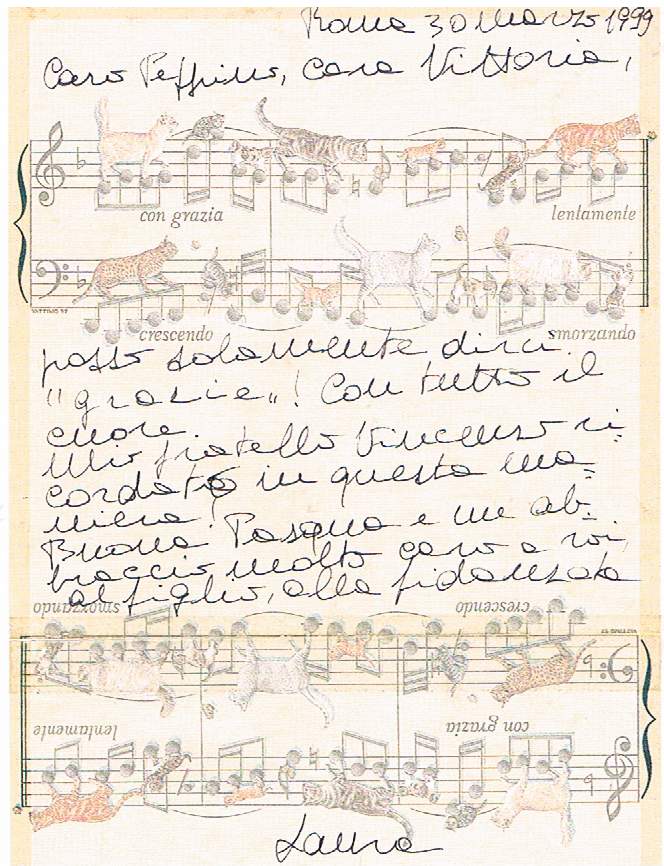 Roma 30 marzo 1999
Caro Peppino, cara Vittoria,
con grazia
lentamente
crescendo
smorzando
posso solamente dirci
"grazie"! Con tutto il
cuore.
Mio fratello Vincenzo ri-
cordato in questa ma-
niera!
Buona Pasqua e un ab-
braccio molto caro a voi,
al figlio, alla fidanzata
smorzando
crescendo
lentamente
con grazia
Laura